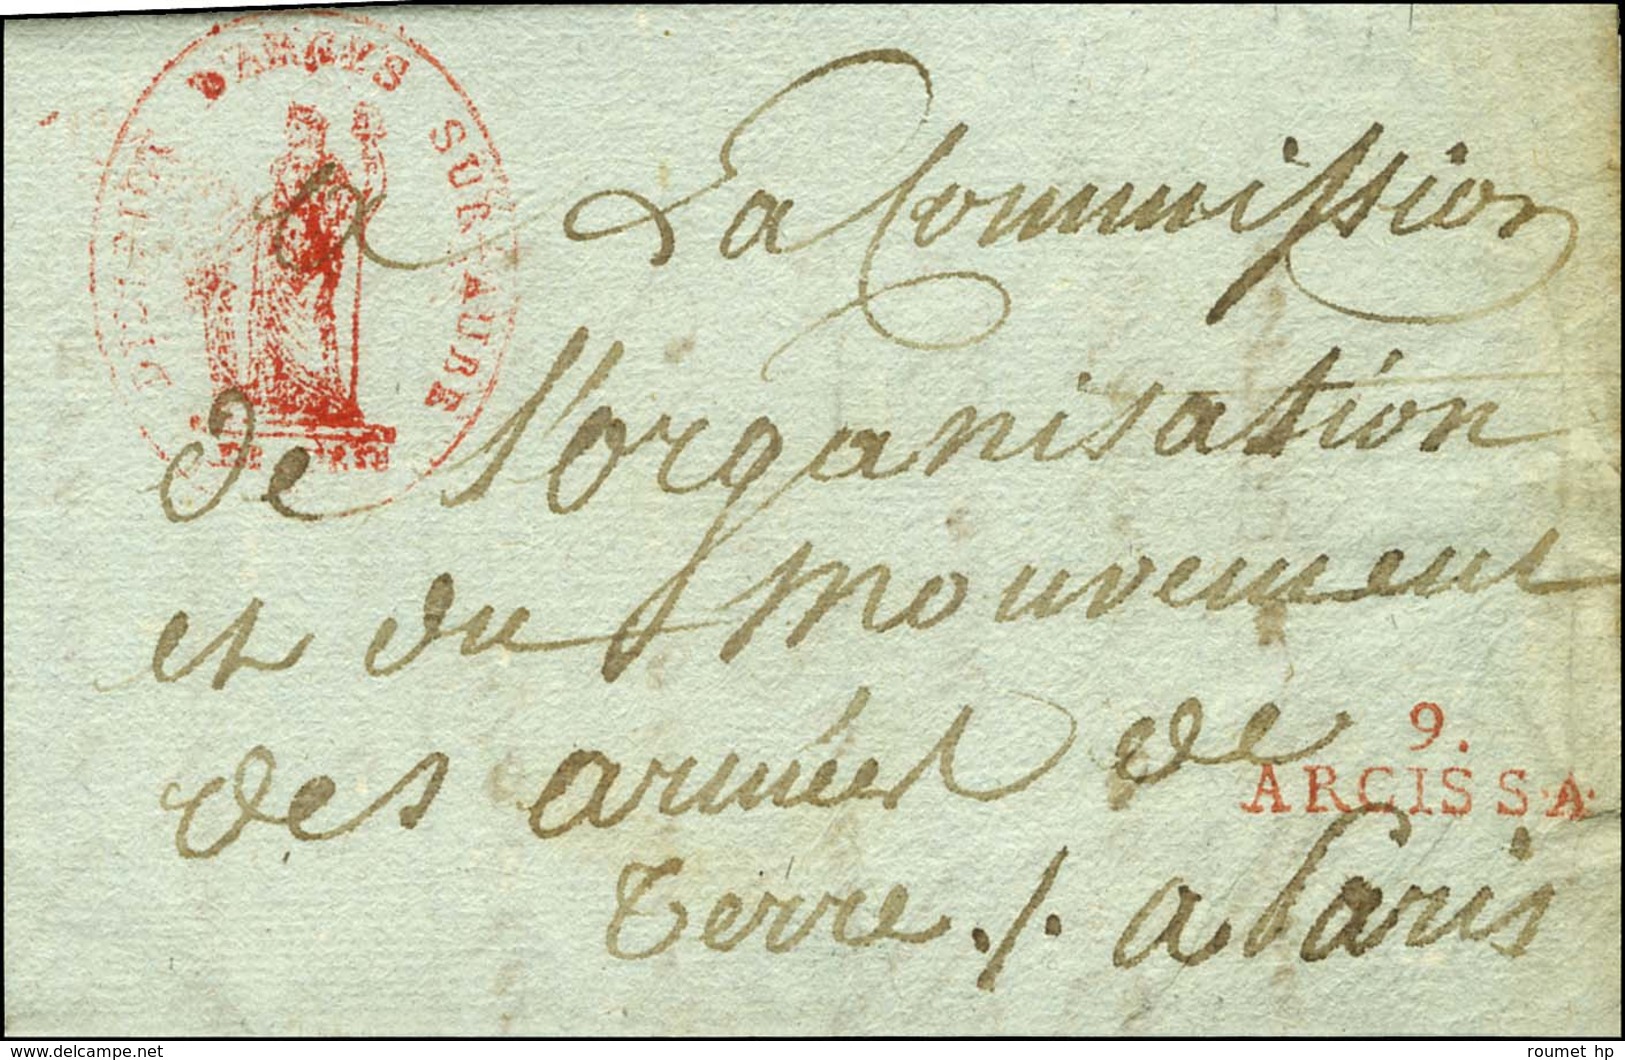 DISTRICT D'ARCYS SUR AUBE
a La Commission
de l'organisation
et du mouvement
des armées de
9.
ARCIS S.A.
terre ./. a Paris
www.delcampe.net
roumet hp